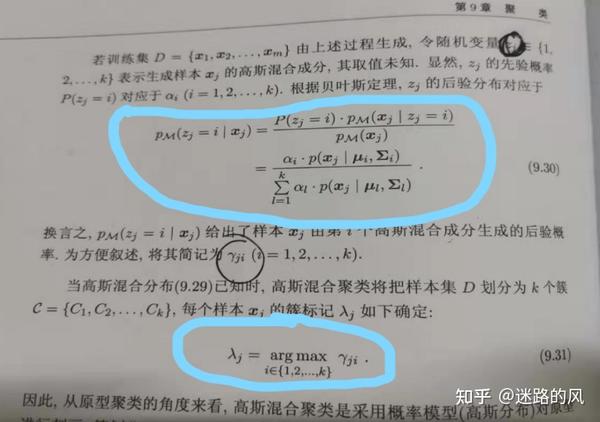 第9章 聚 类
若训练集 D = {x₁, x₂, ..., xₘ} 由上述过程生成, 令随机变量 zⱼ ∈ {1,
2, ..., k} 表示生成样本 xⱼ 的高斯混合成分, 其取值未知. 显然, zⱼ 的先验概率
P(zⱼ = i) 对应于 αᵢ (i = 1, 2, ..., k). 根据贝叶斯定理, zⱼ 的后验分布对应于
p_M(zⱼ = i | xⱼ) = P(zⱼ = i) · p_M(xⱼ | zⱼ = i) / p_M(xⱼ)
= αᵢ · p(xⱼ | μᵢ, Σᵢ) / ∑_{l=1}^{k} αₗ · p(xⱼ | μₗ, Σₗ) . (9.30)
换言之, p_M(zⱼ = i | xⱼ) 给出了样本 xⱼ 由第 i 个高斯混合成分生成的后验概
率. 为方便叙述, 将其简记为 γⱼᵢ (i = 1, 2, ..., k).
当高斯混合分布(9.29)已知时, 高斯混合聚类将把样本集 D 划分为 k 个簇
C = {C₁, C₂, ..., Cₖ}, 每个样本 xⱼ 的簇标记 λⱼ 如下确定:
λⱼ = arg max_{i∈{1,2,...,k}} γⱼᵢ . (9.31)
因此, 从原型聚类的角度来看, 高斯混合聚类是采用概率模型(高斯分布)对原型
知乎 @迷路的风